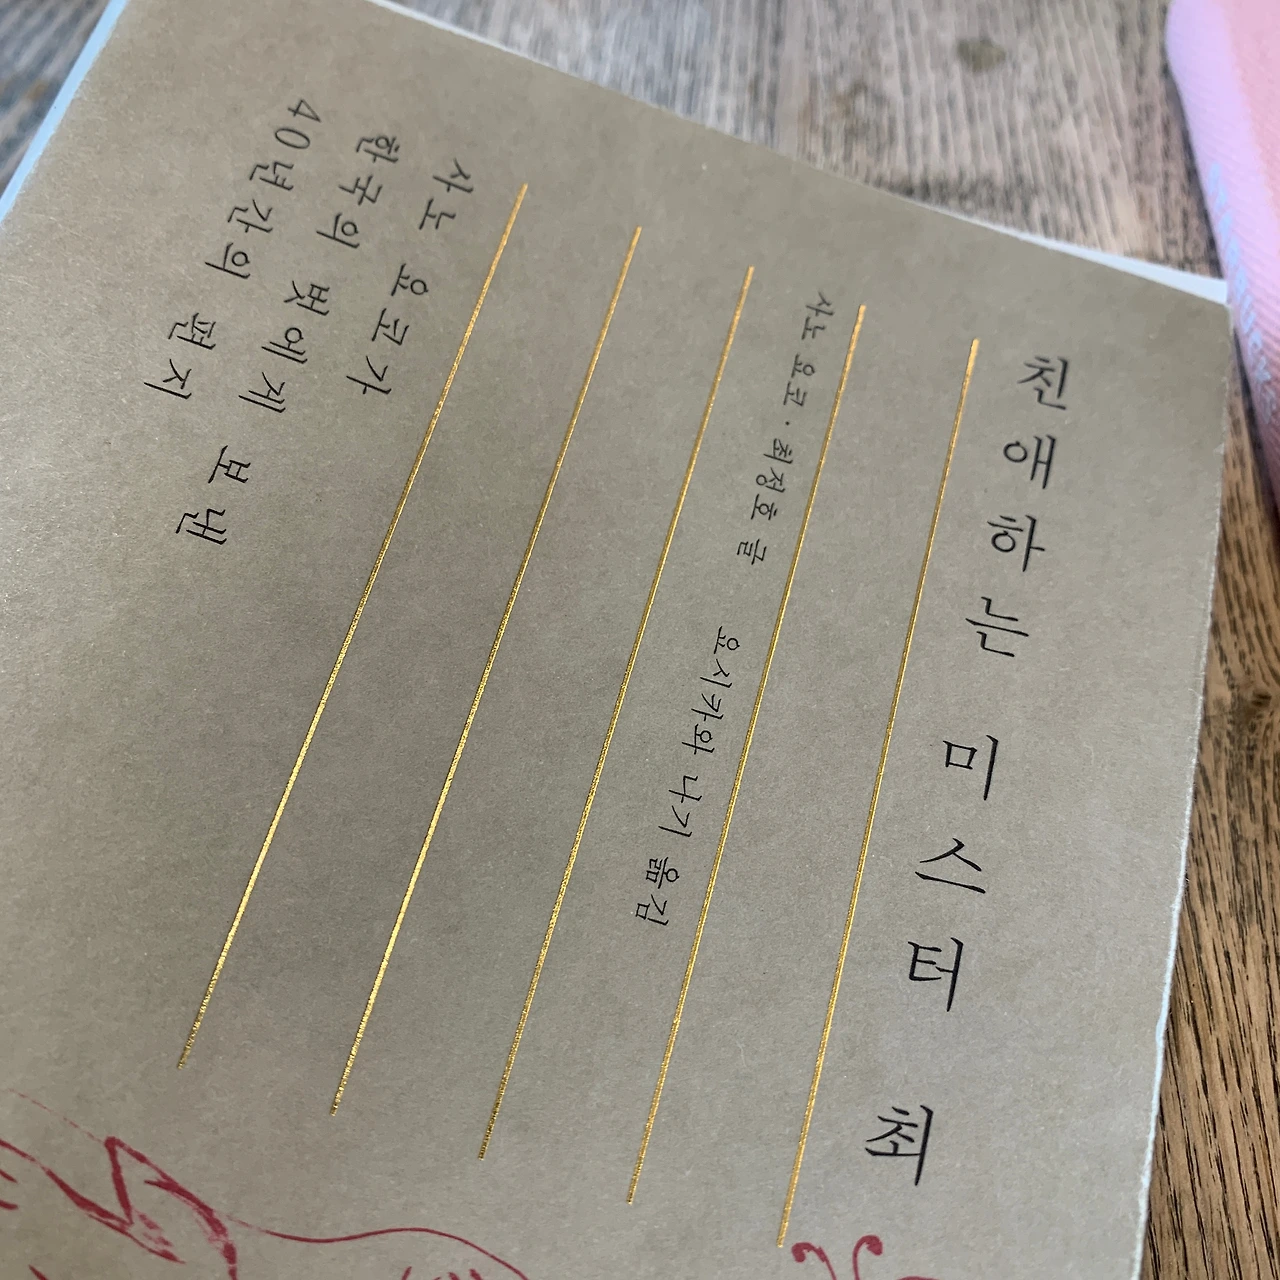 친애하는 미스터 최
사노 요코·최정호 글 요시카와 나기 옮김
사노 요코가
한국의 벗에게 보낸
40년간의 편지